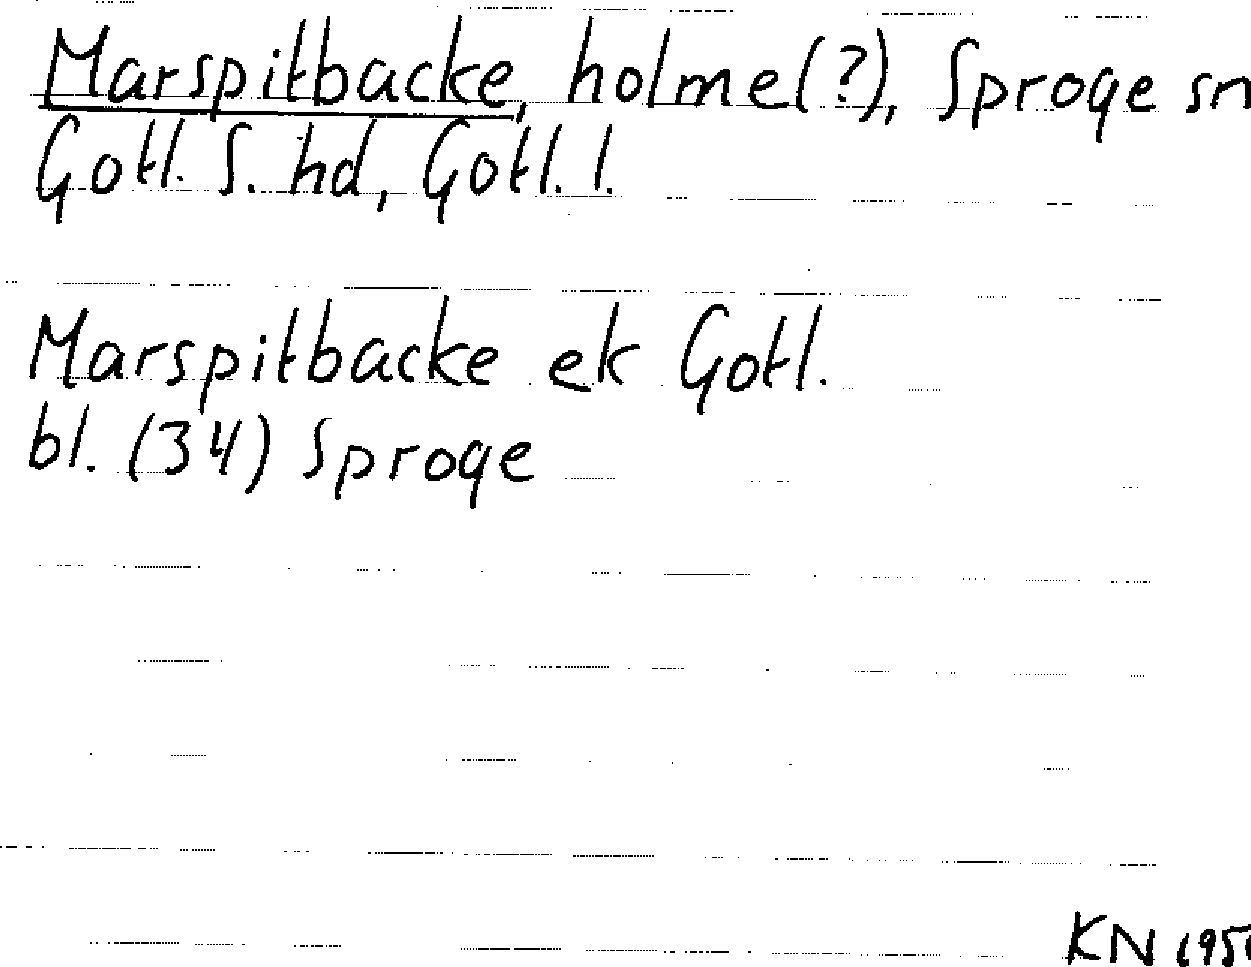 Marspitbacke, holme(?), Sproge sn
Gotl. S. hd, Gotl. l.
Marspitbacke ek Gotl.
bl. (34) Sproge
KN